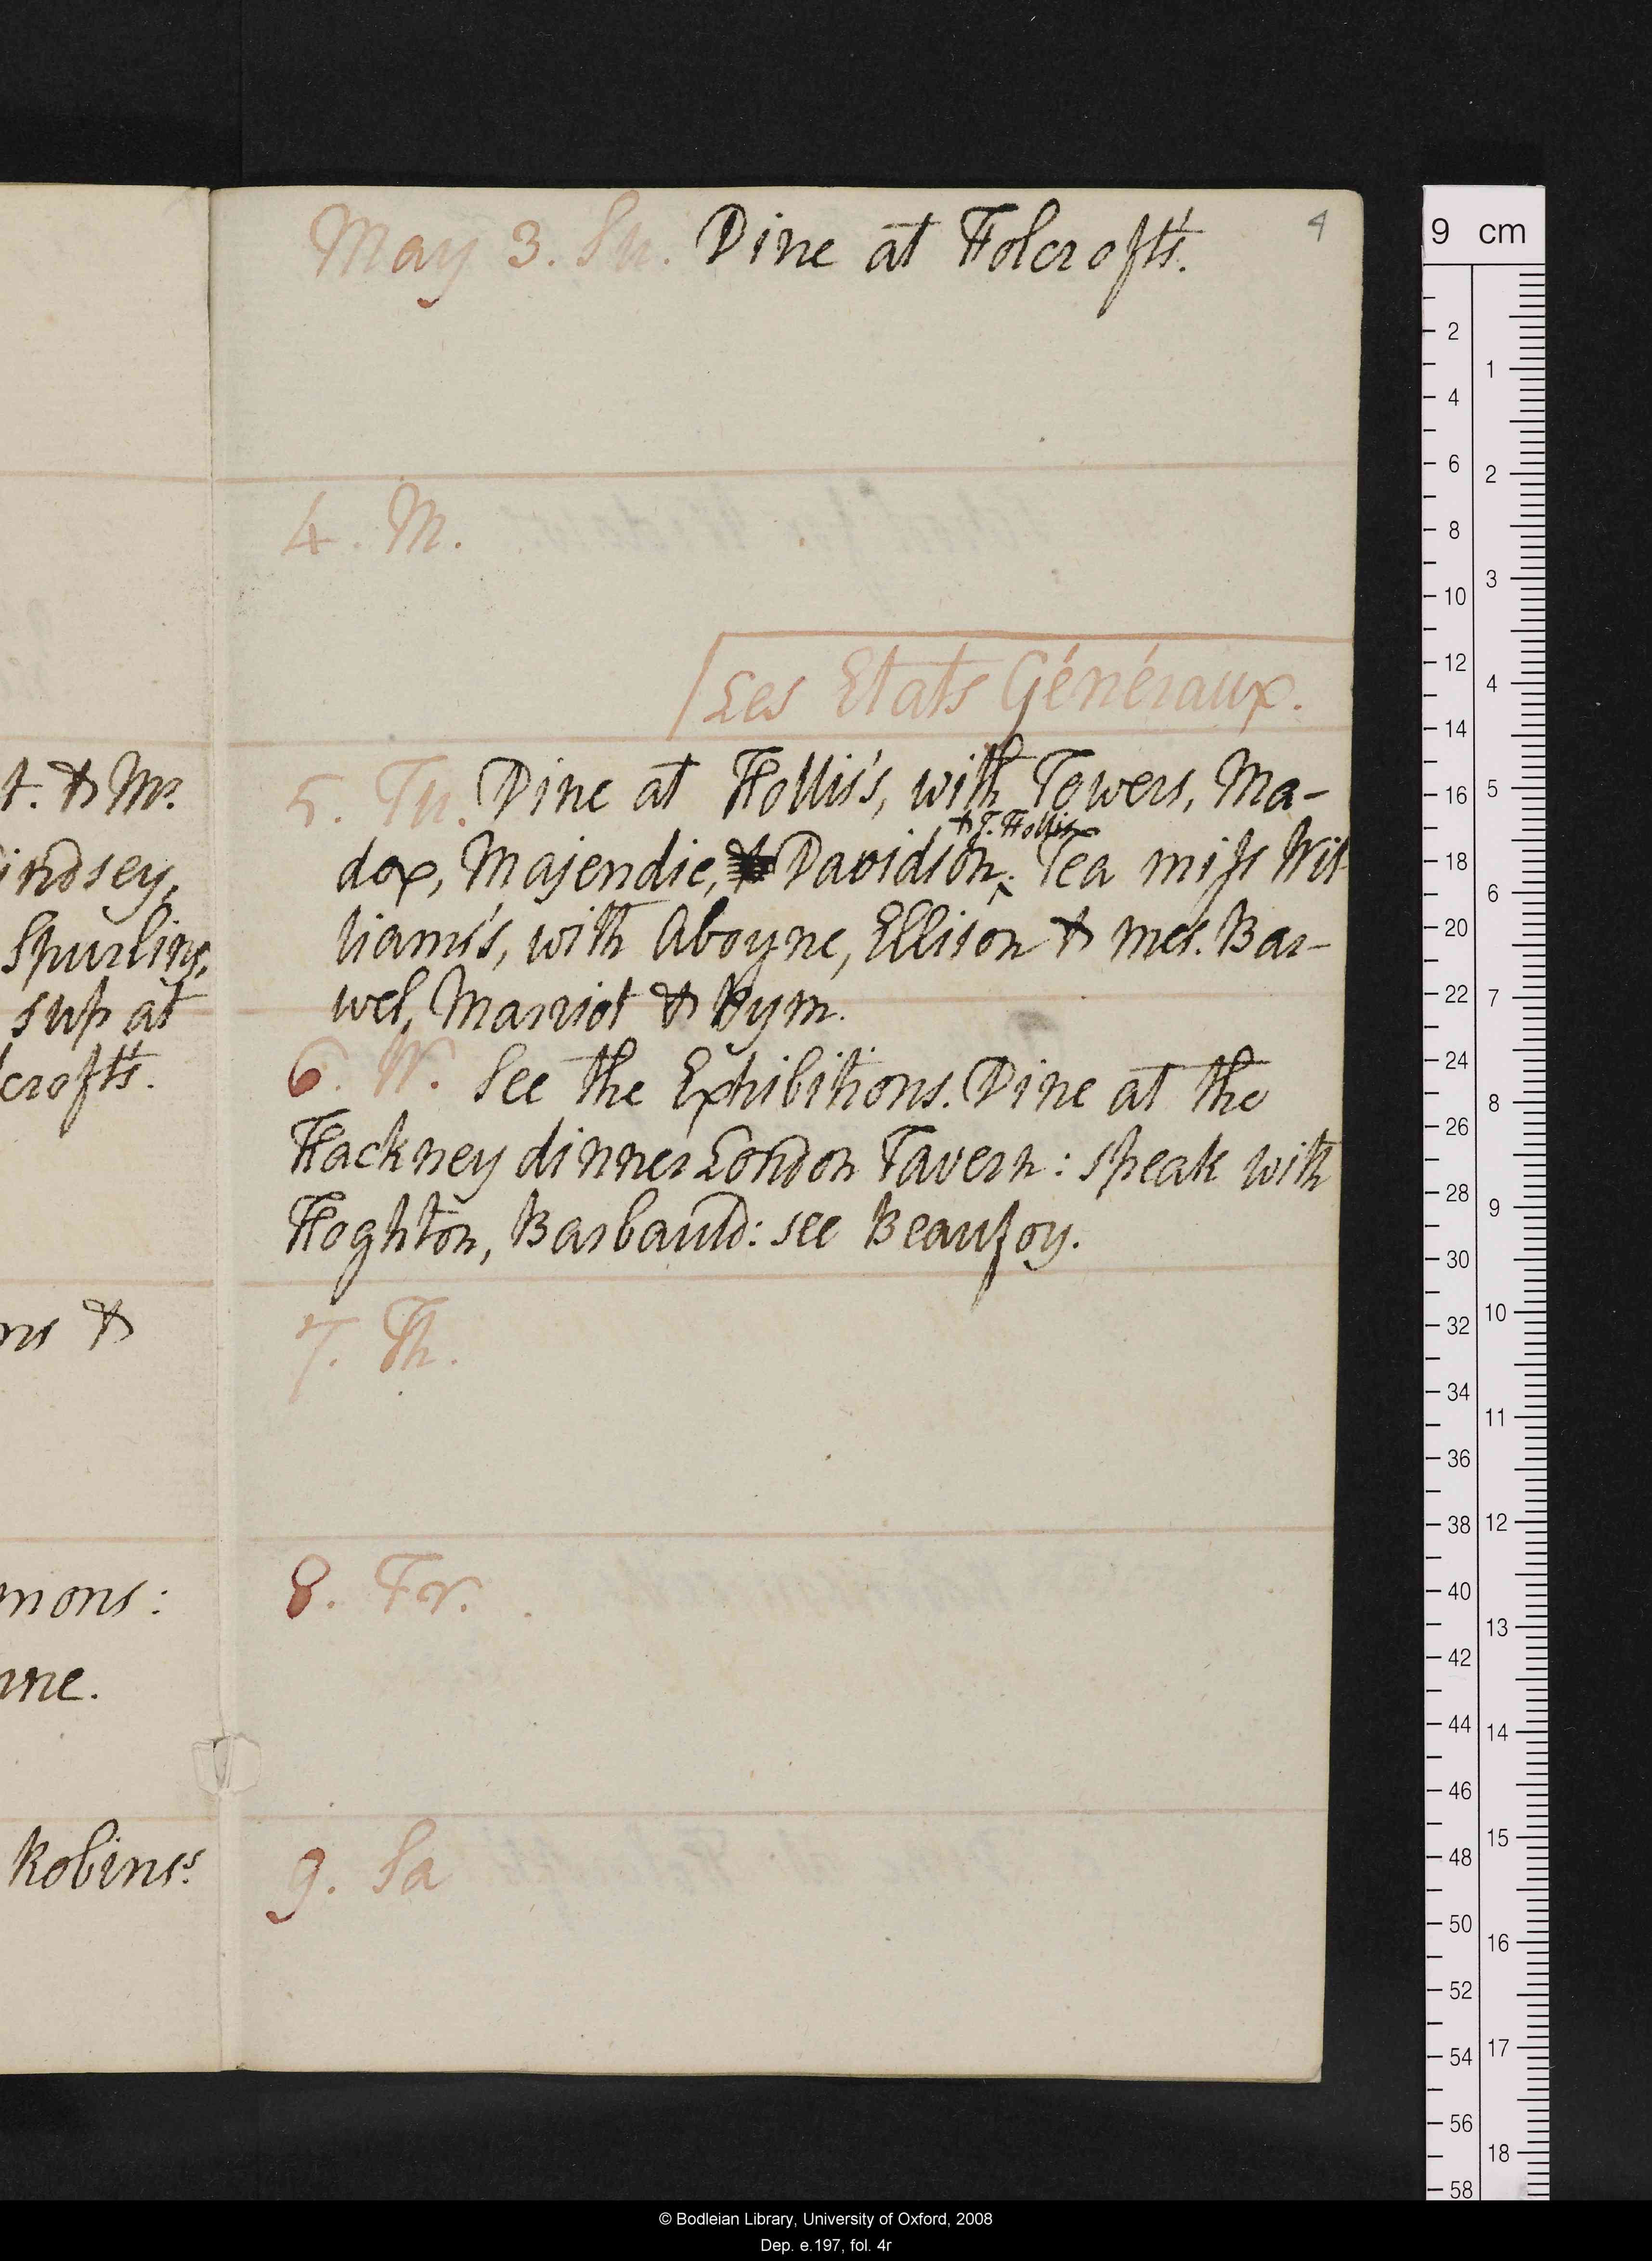 4
May 3. Su. Dine at Holcroft's.
4. M.
Les Etats Généraux.
5. Tu. Dine at Hollis's, with Towers, Ma-
& T. Hollis
dox, Majendie, Davidson. Tea miss Wil-
liams's, with Aboyne, Ellison & mes. Bar-
wel, Marriot & Pym.
6. W. See the Exhibitions. Dine at the
Hackney dinner London Tavern: speak with
Hoghton, Barbauld: see Beaufoy.
7. Th.
8. Fr.
9. Sa
t. & Mrs
indsey,
Spurling,
sup at
lcroft's.
ns &
mons:
nne.
Robinss.
9 cm
2
4
6
8
10
12
14
16
18
20
22
24
26
28
30
32
34
36
38
40
42
44
46
48
50
52
54
56
58
1
2
3
4
5
6
7
8
9
10
11
12
13
14
15
16
17
18
© Bodleian Library, University of Oxford, 2008
Dep. e.197, fol. 4r